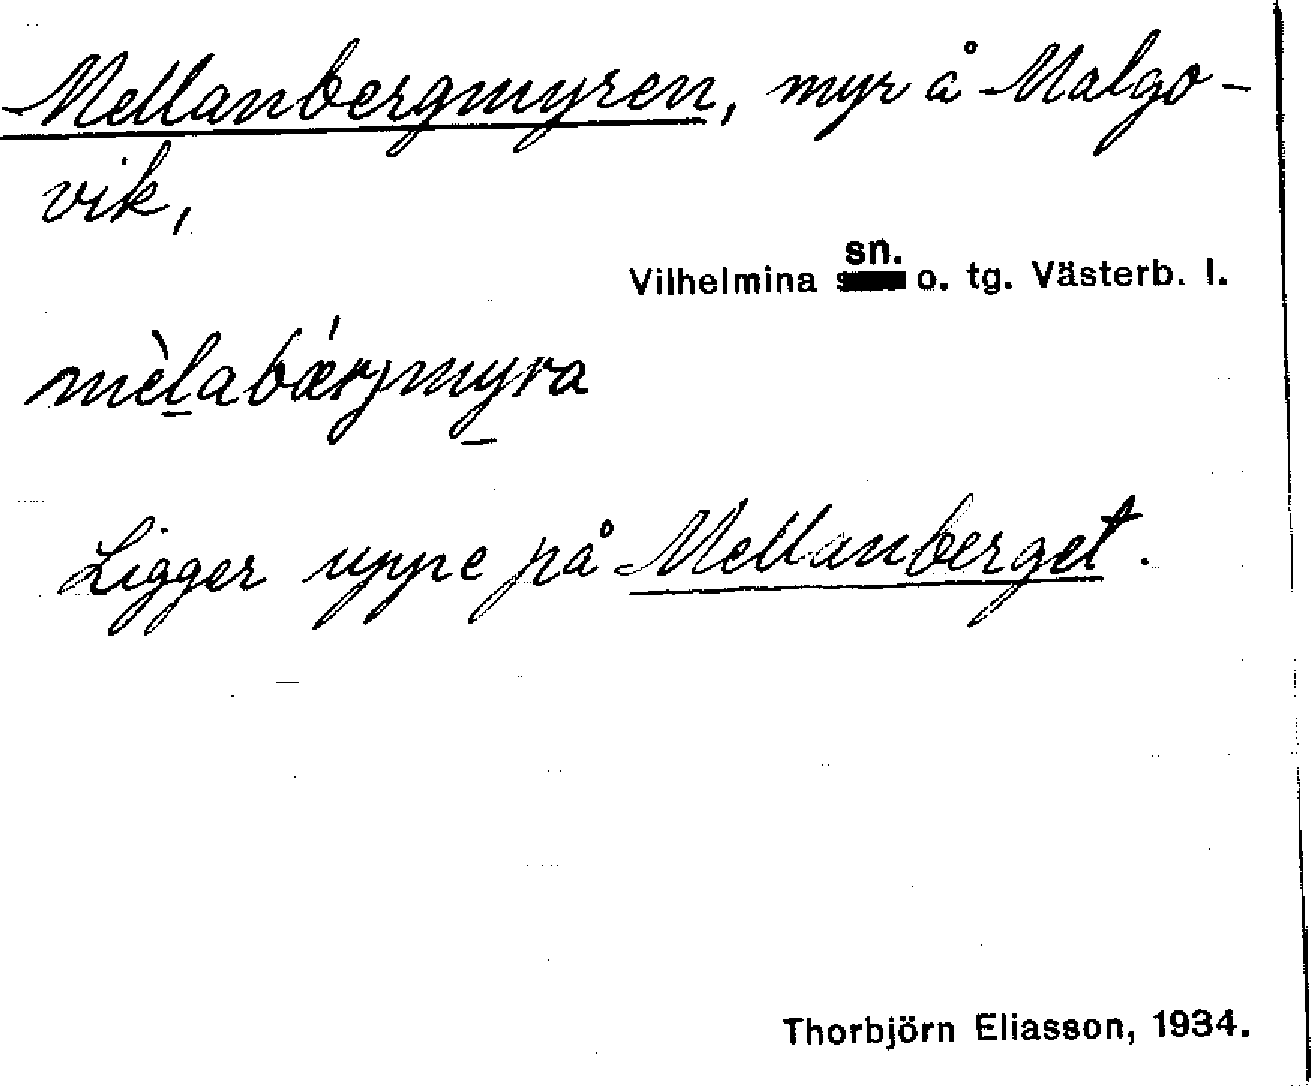 Mellanbergmyren, myr å Malgo-
vik,
Vilhelmina sn. o. tg. Västerb. l.
mèlabǽrjmyra
Ligger uppe på Mellanberget.
Thorbjörn Eliasson, 1934.